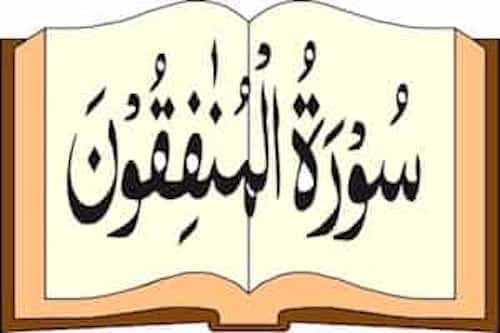 سُوْرَةُ الْمُنٰفِقُوْنَ